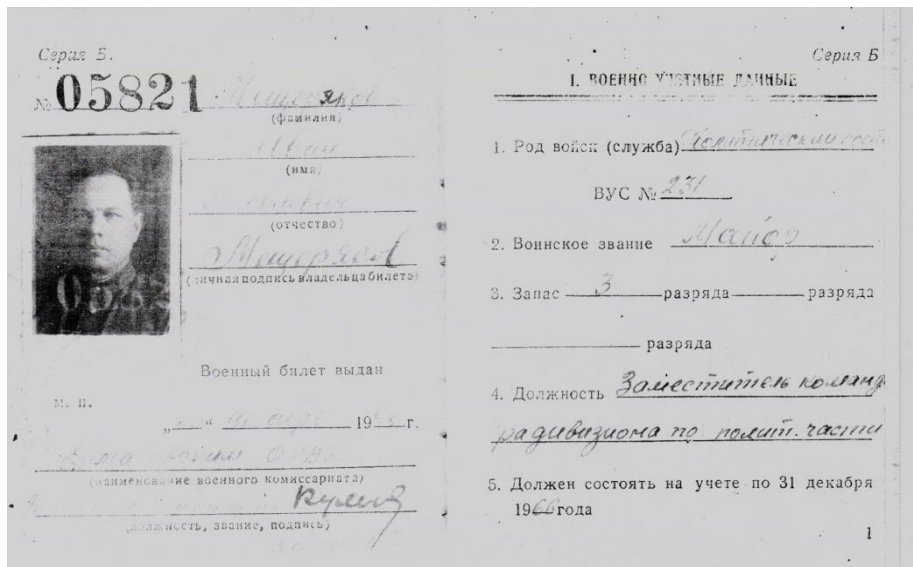 Серия Б.
№ 05821
Мещеряков
(фамилия)
Иван
(имя)
(отчество)
Мещеряков
(личная подпись владельца билета)
Военный билет выдан
М. П.
„ “ 19 г.
(наименование военного комиссариата)
(должность, звание, подпись)
Серия Б
I. ВОЕННО УЧЕТНЫЕ ДАННЫЕ
1. Род войск (служба) Политический сост
ВУС № 231
2. Воинское звание Майор
3. Запас 3 разряда разряда
разряда
4. Должность Заместитель команд
ра дивизиона по полит. части
5. Должен состоять на учете по 31 декабря
1966 года
1